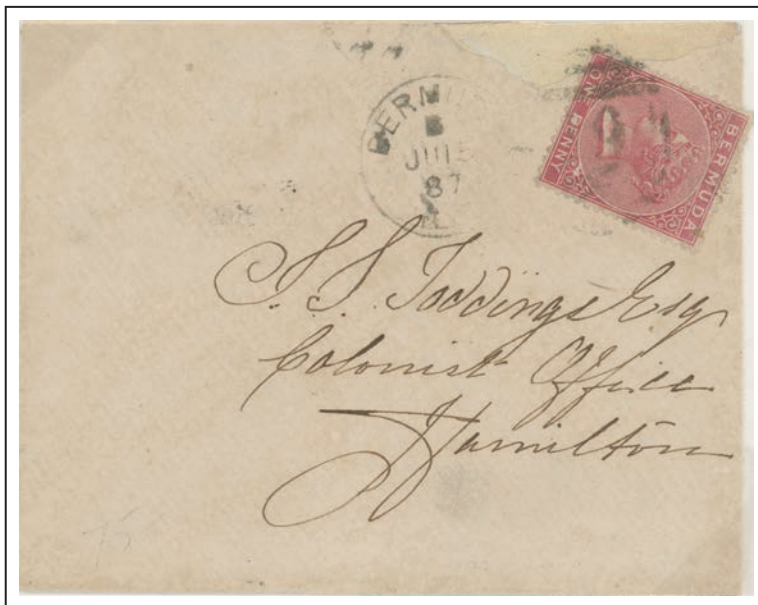 BERMU
B
JU 15
87
BERMUDA
ONE PENNY
S. S. Toddings Esqr
Colonist Office
Hamilton
75